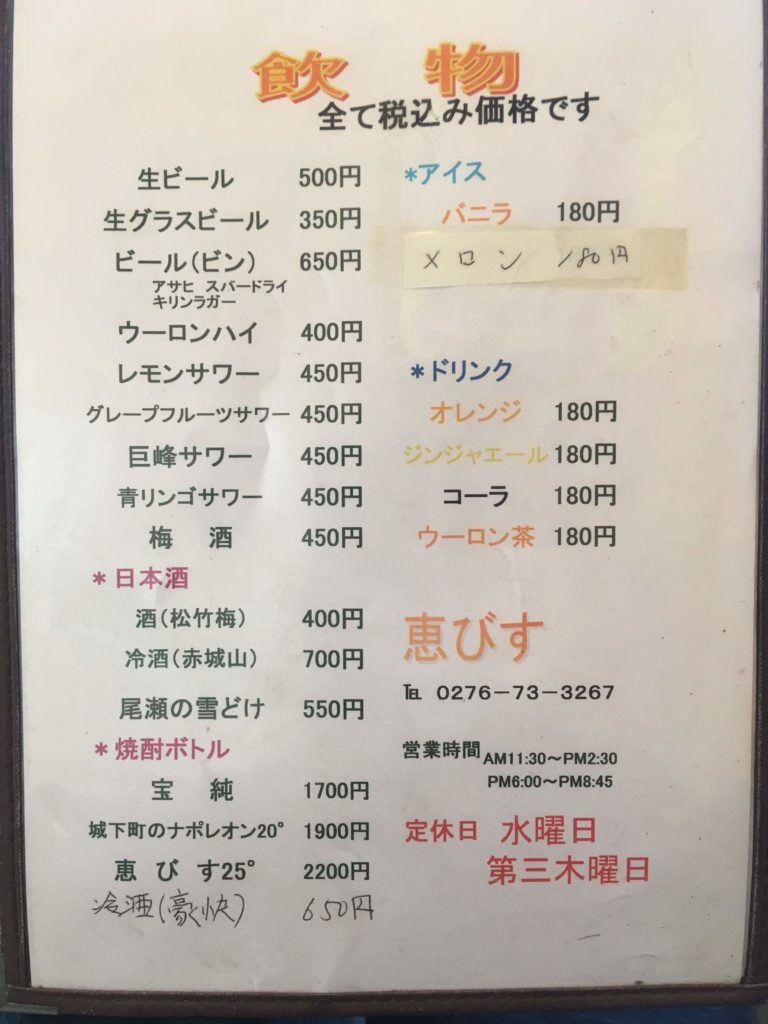 飲物
全て税込み価格です
生ビール 500円
生グラスビール 350円
ビール（ビン） 650円
アサヒ スパードライ
キリンラガー
ウーロンハイ 400円
レモンサワー 450円
グレープフルーツサワー 450円
巨峰サワー 450円
青リンゴサワー 450円
梅酒 450円
＊日本酒
酒（松竹梅） 400円
冷酒（赤城山） 700円
尾瀬の雪どけ 550円
＊焼酎ボトル
宝純 1700円
城下町のナポレオン20° 1900円
恵びす25° 2200円
冷酒(豪快) 650円
＊アイス
バニラ 180円
メロン 180円
＊ドリンク
オレンジ 180円
ジンジャエール 180円
コーラ 180円
ウーロン茶 180円
恵びす
℡ 0276－73－3267
営業時間 AM11:30～PM2:30
PM6:00～PM8:45
定休日 水曜日
第三木曜日